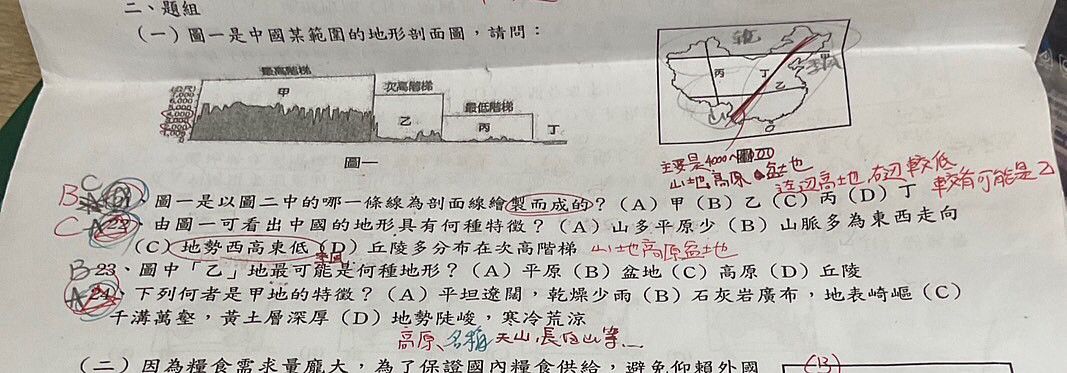 二、題組
(一)圖一是中國某範圍的地形剖面圖，請問：
最高階梯
次高階梯
最低階梯
7,000
6,000
5,000
4,000
甲
乙
丙
丁
圖一
甲
丙
丁
乙
主要是4000~
山地,高原,盆地也
這边高地,右边較低
較有可能是乙
B C
圖一是以圖二中的哪一條線為剖面線繪製而成的？(A)甲(B)乙(C)丙(D)丁
C 22、由圖一可看出中國的地形具有何種特徵？(A)山多平原少(B)山脈多為東西走向
(C)地勢西高東低(D)丘陵多分布在次高階梯 山地高原盆地
B 23、圖中「乙」地最可能是何種地形？(A)平原(B)盆地(C)高原(D)丘陵
A 24、下列何者是甲地的特徵？(A)平坦遼闊，乾燥少雨(B)石灰岩廣布，地表崎嶇(C)
千溝萬壑，黃土層深厚(D)地勢陡峻，寒冷荒涼
高原、名稱 天山,長白山等
(二)因為糧食需求量龐大，為了保證國內糧食供給，避免仰賴外國
(13)